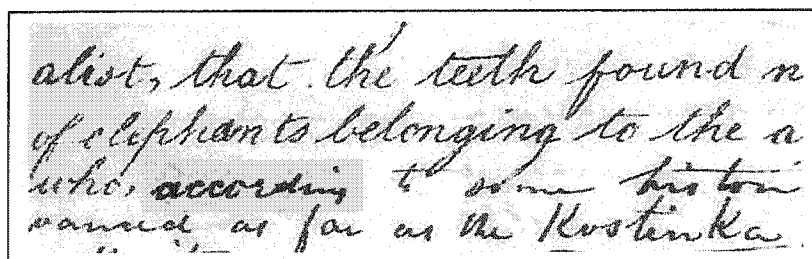 alist, that the teeth found n
of eliphants belonging to the a
who, according to some histori
vanced as far as the Kostinka